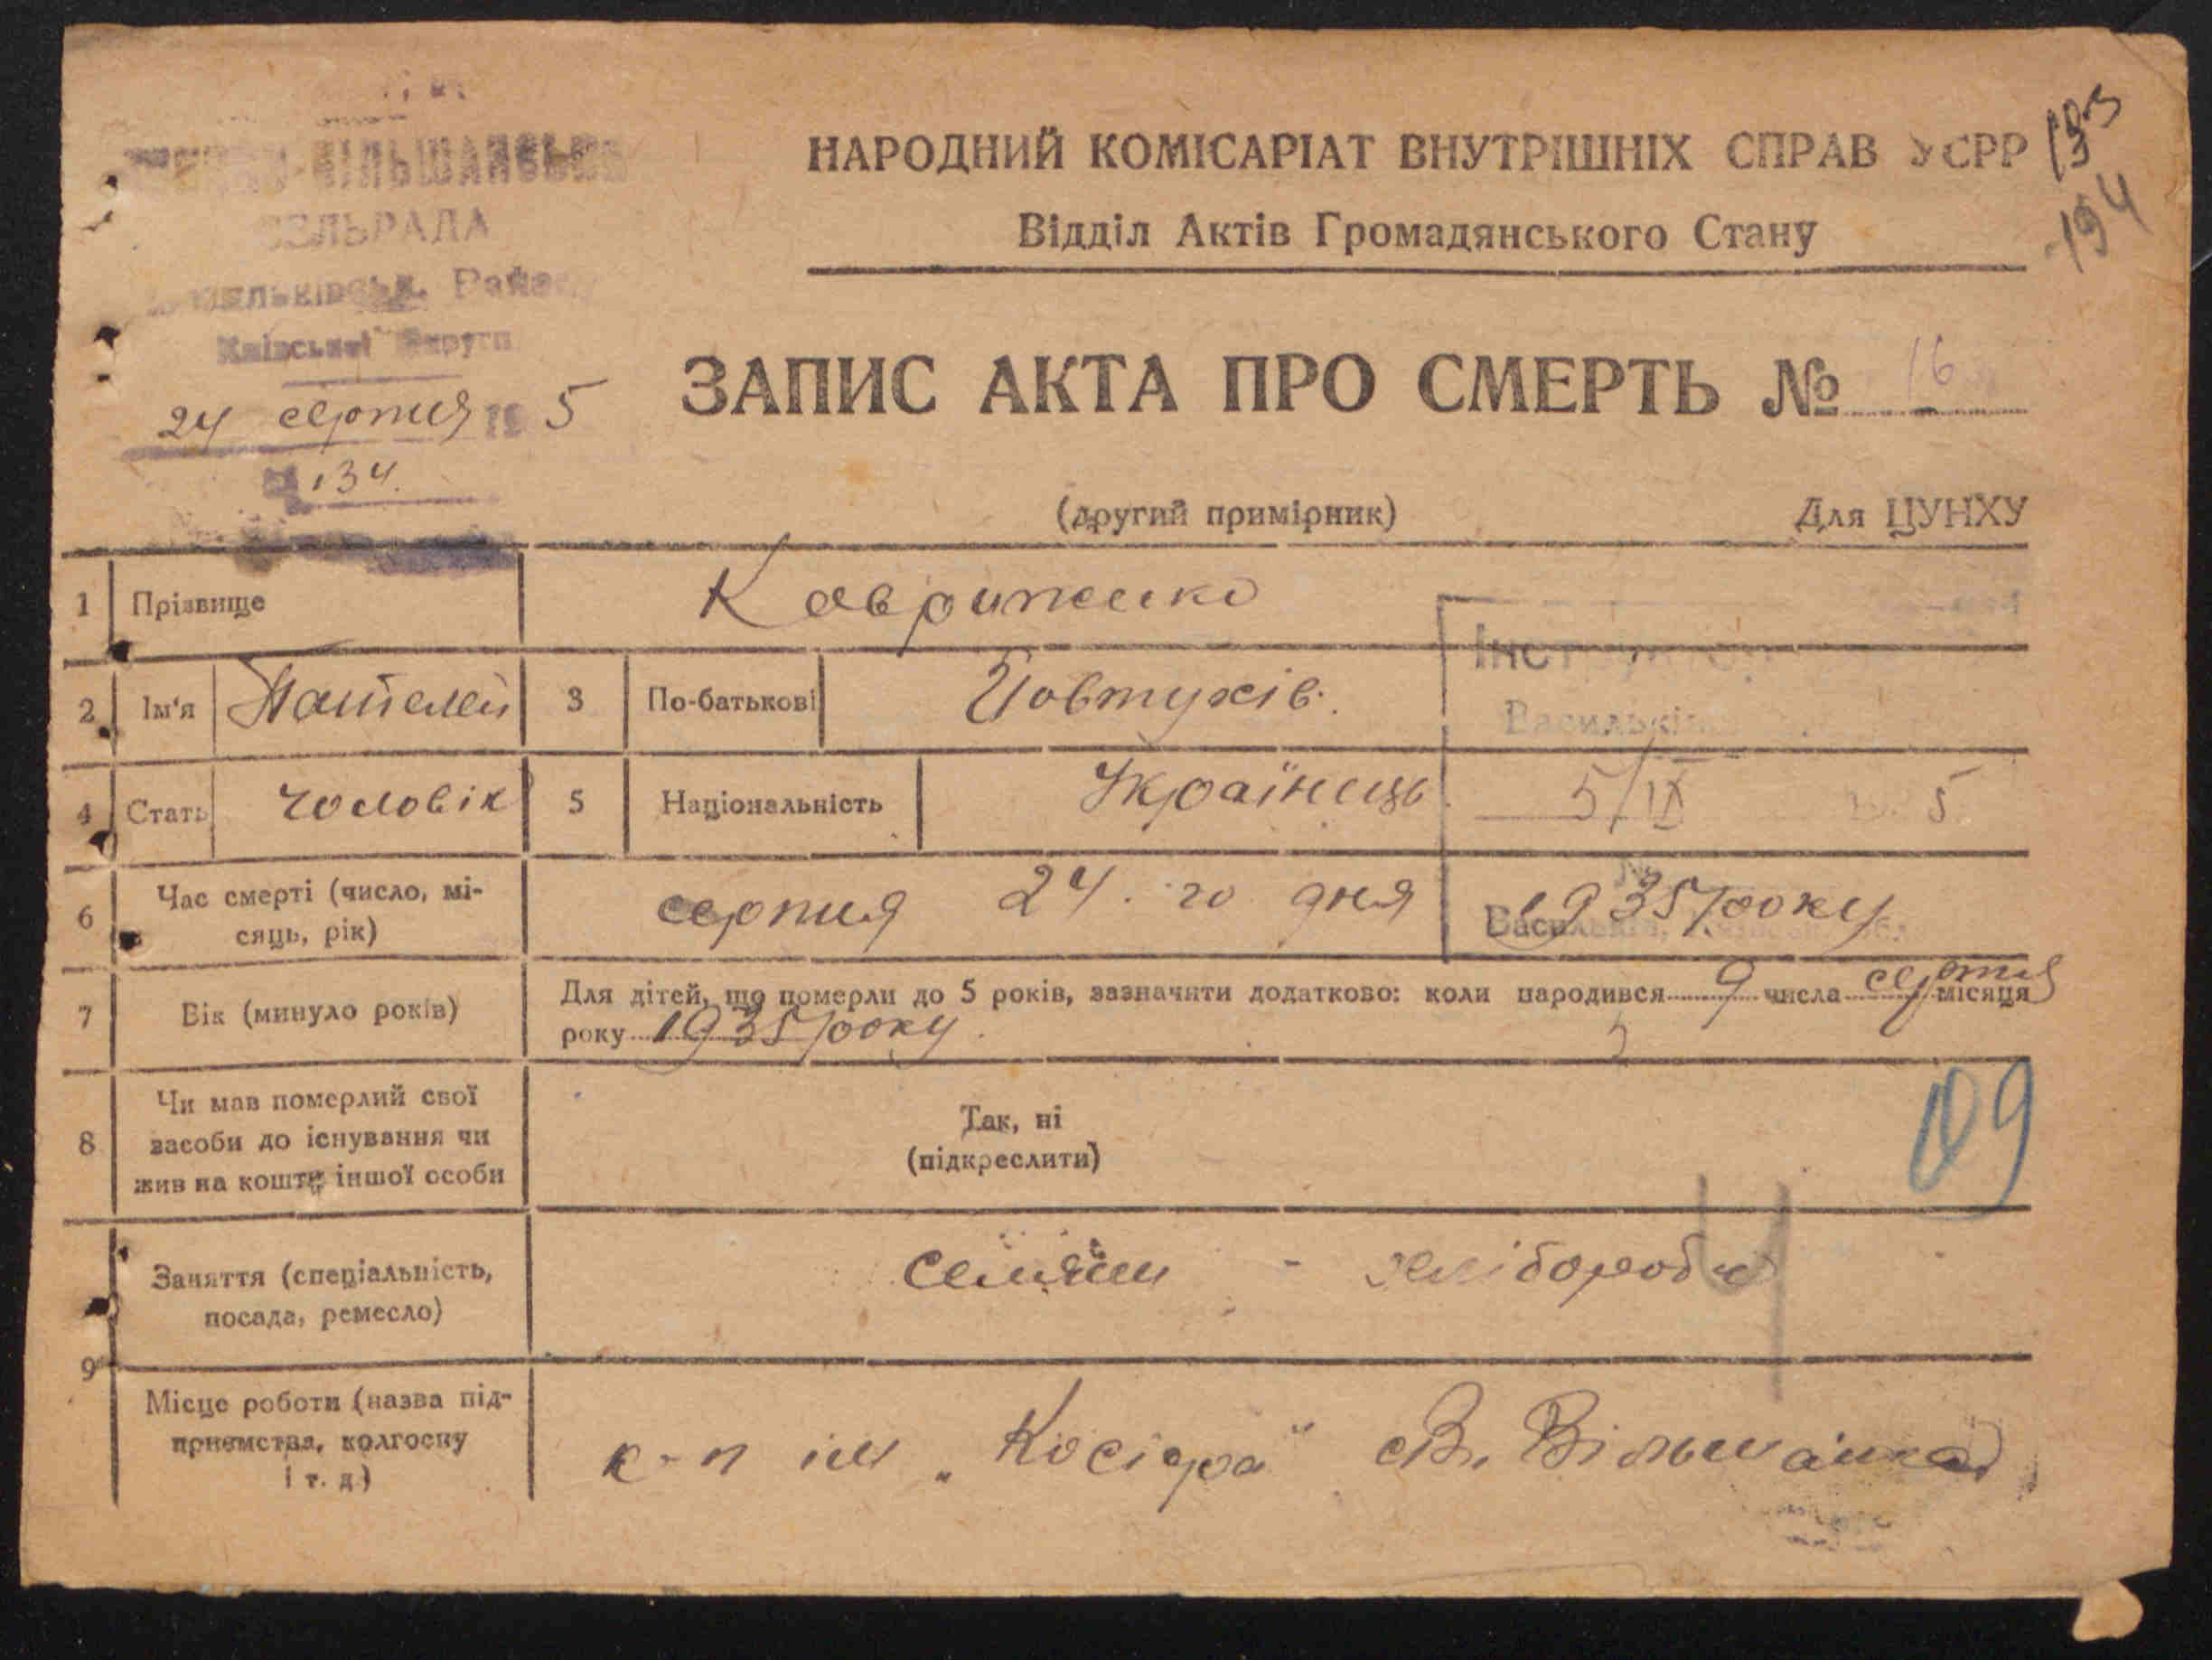 НАРОДНИЙ КОМІСАРІАТ ВНУТРІШНІХ СПРАВ УСРР
Відділ Актів Громадянського Стану
193
194
ВІЛЬШАНСЬКА
СЕЛЬРАДА
Васильківськ. Району
Київської Округи
24 серпня 19 5
№ 134.
ЗАПИС АКТА ПРО СМЕРТЬ № 16
(другий примірник) Для ЦУНХУ
1 Прізвище Кавриженко
2 Ім'я Пантелей 3 По-батькові Йовтухів.
Васильків
4 Стать чоловік 5 Національність Українець
5/IX 5
6 Час смерті (число, мі-
сяць, рік) серпня 24. го дня 1935 року
7 Вік (минуло років) Для дітей, що померли до 5 років, зазначити додатково: коли народився 9 числа серпня місяця
року 1935 року.
8 Чи мав померлий свої
засоби до існування чи
жив на кошти іншої особи
Так, ні
(підкреслити)
109
9 Заняття (спеціальність,
посада, ремесло) - хлібороби
4
Місце роботи (назва під-
приємства, колгоспу
і т. д.) к-п ім „Косіора" В. Вільшанка